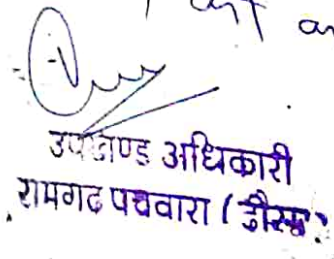 उपखण्ड अधिकारी
रामगढ पचवारा (दौसा)